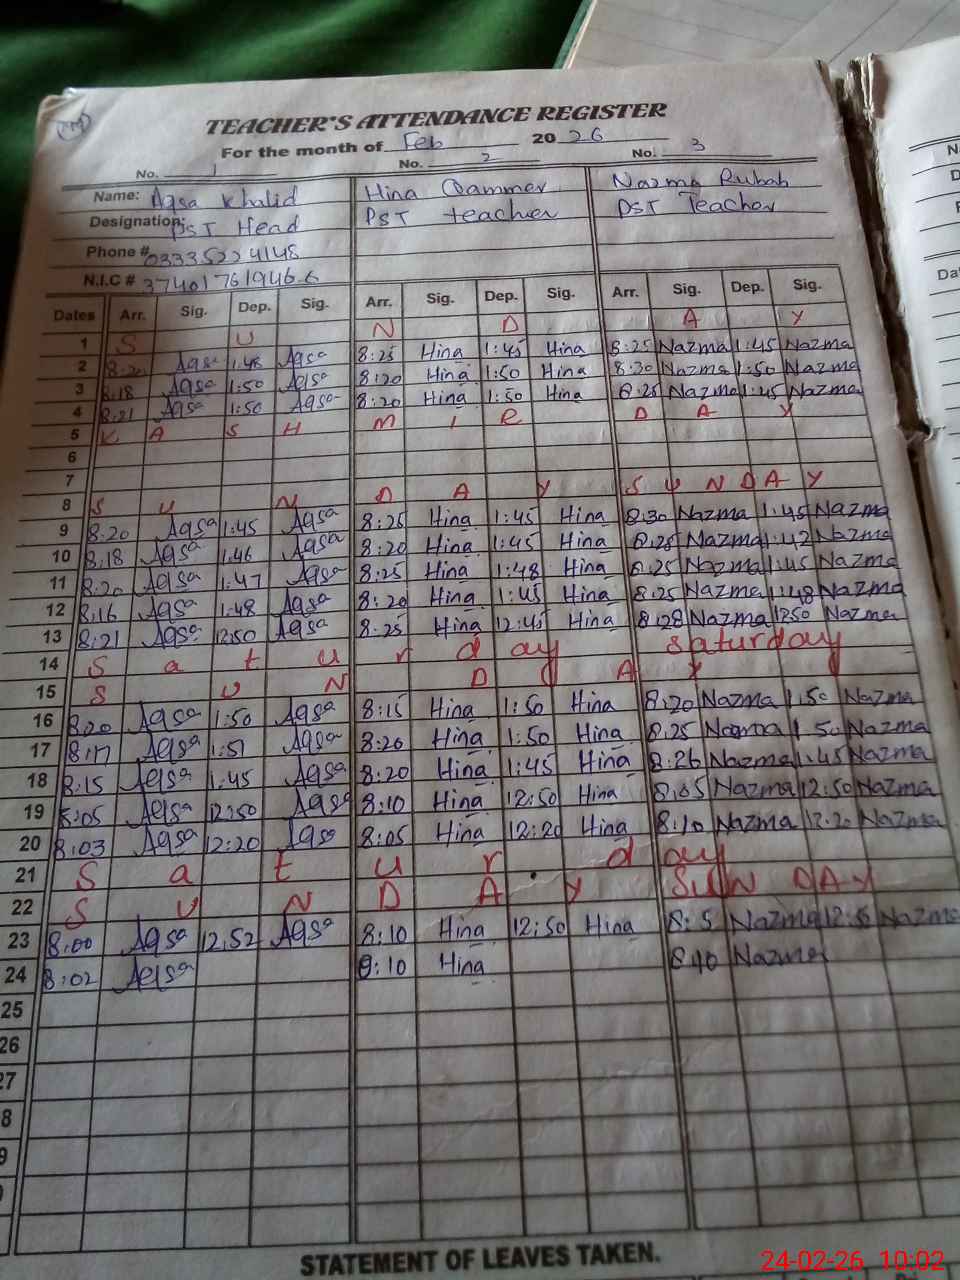 TEACHER'S ATTENDANCE REGISTER
For the month of Feb 20 26
No. 1 No. 2 No. 3
Name: Aqsa Khalid Hina Qammer Nazma Rubab
Designation: PST Head PST teacher PST Teacher
Phone # 03335224148
N.I.C # 37401761946-6
Dates Arr. Sig. Dep. Sig. Arr. Sig. Dep. Sig. Arr. Sig. Dep. Sig.
1 S U N D A Y
2 8:20 Aqsa 1:48 Aqsa 8:25 Hina 1:45 Hina 8:25 Nazma 1:45 Nazma
3 8:18 Aqsa 1:50 Aqsa 8:20 Hina 1:50 Hina 8:30 Nazma 1:50 Nazma
4 8:21 Aqsa 1:50 Aqsa 8:20 Hina 1:50 Hina 8:25 Nazma 1:45 Nazma
5 K A S H M I R D A Y
6
7
8 S U N D A Y S U N D A Y
9 8:20 Aqsa 1:45 Aqsa 8:25 Hina 1:45 Hina 8:30 Nazma 1:45 Nazma
10 8:18 Aqsa 1:46 Aqsa 8:20 Hina 1:45 Hina 8:25 Nazma 1:42 Nazma
11 8:20 Aqsa 1:47 Aqsa 8:25 Hina 1:48 Hina 8:25 Nazma 1:45 Nazma
12 8:16 Aqsa 1:48 Aqsa 8:20 Hina 1:45 Hina 8:25 Nazma 1:48 Nazma
13 8:21 Aqsa 12:50 Aqsa 8:25 Hina 12:45 Hina 8:28 Nazma 1250 Nazma
14 S a t u r d ay saturday
15 S U N D A Y
16 8:20 Aqsa 1:50 Aqsa 8:15 Hina 1:50 Hina 8:20 Nazma 1:50 Nazma
17 8:17 Aqsa 1:51 Aqsa 8:20 Hina 1:50 Hina 8:25 Nazma Nazma
18 8:15 Aqsa 1:45 Aqsa 8:20 Hina 1:45 Hina 8:26 Nazma 1:45 Nazma
19 8:05 Aqsa 12:50 Aqsa 8:10 Hina 12:50 Hina 8:05 Nazma 12:50 Nazma
20 8:03 Aqsa 12:20 Aqsa 8:05 Hina 12:20 Hina 8:10 Nazma 12:20 Nazma
21 S a t u r d ay
22 S U N D A Y SUN DAY
23 8:00 Aqsa 12:52 Aqsa 8:10 Hina 12:50 Hina Nazma Nazma
24 8:02 Aqsa 8:10 Hina 8:10 Nazma
25
26
27
8
9
STATEMENT OF LEAVES TAKEN.
24-02-26 10:02